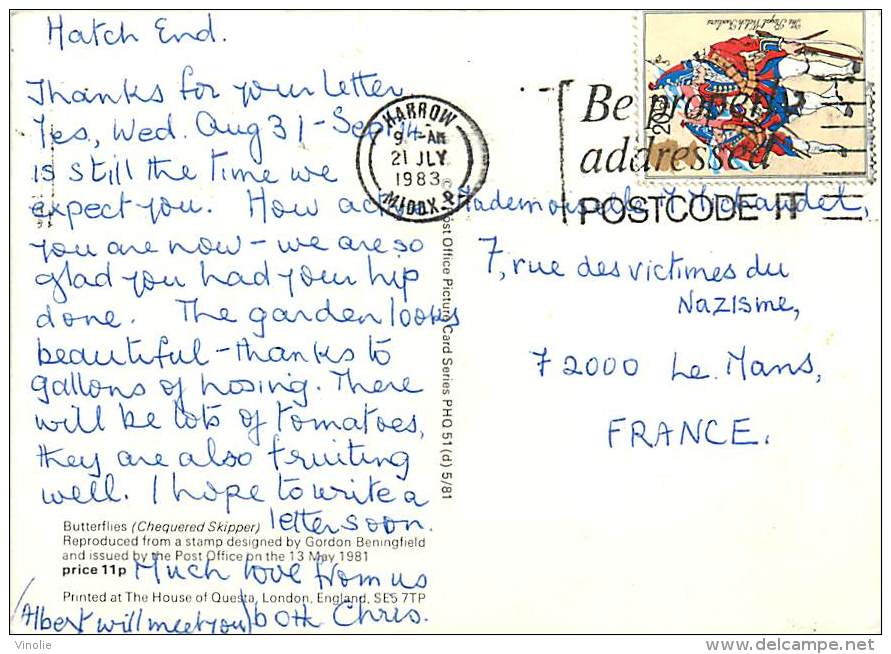 Hatch End.
Thanks for your letter
Yes, Wed. Aug 31 - Sept 14
is still the time we
expect you. How active
you are now - we are so
glad you had your hip
done. The garden looks
beautiful - thanks to
gallons of hosing. There
will be lots of tomatoes,
they are also fruiting
well. I hope to write a
letter soon.
Much love from us
both Chris.
(Albert will meet you)
Butterflies (Chequered Skipper)
Reproduced from a stamp designed by Gordon Beningfield
and issued by the Post Office on the 13 May 1981
price 11p
Printed at The House of Questa, London, England, SE5 7TP
Post Office Picture Card Series PHQ 51(d) 5/81
HARROW
9 - AM
21 JLY
1983
MIDDX
Be properly
addressed
POSTCODE IT
The Royal Welch Fusiliers
20½
Mademoiselle
7, rue des victimes du
Nazisme,
72000 Le Mans,
FRANCE.
Vinolie
delcampe.net